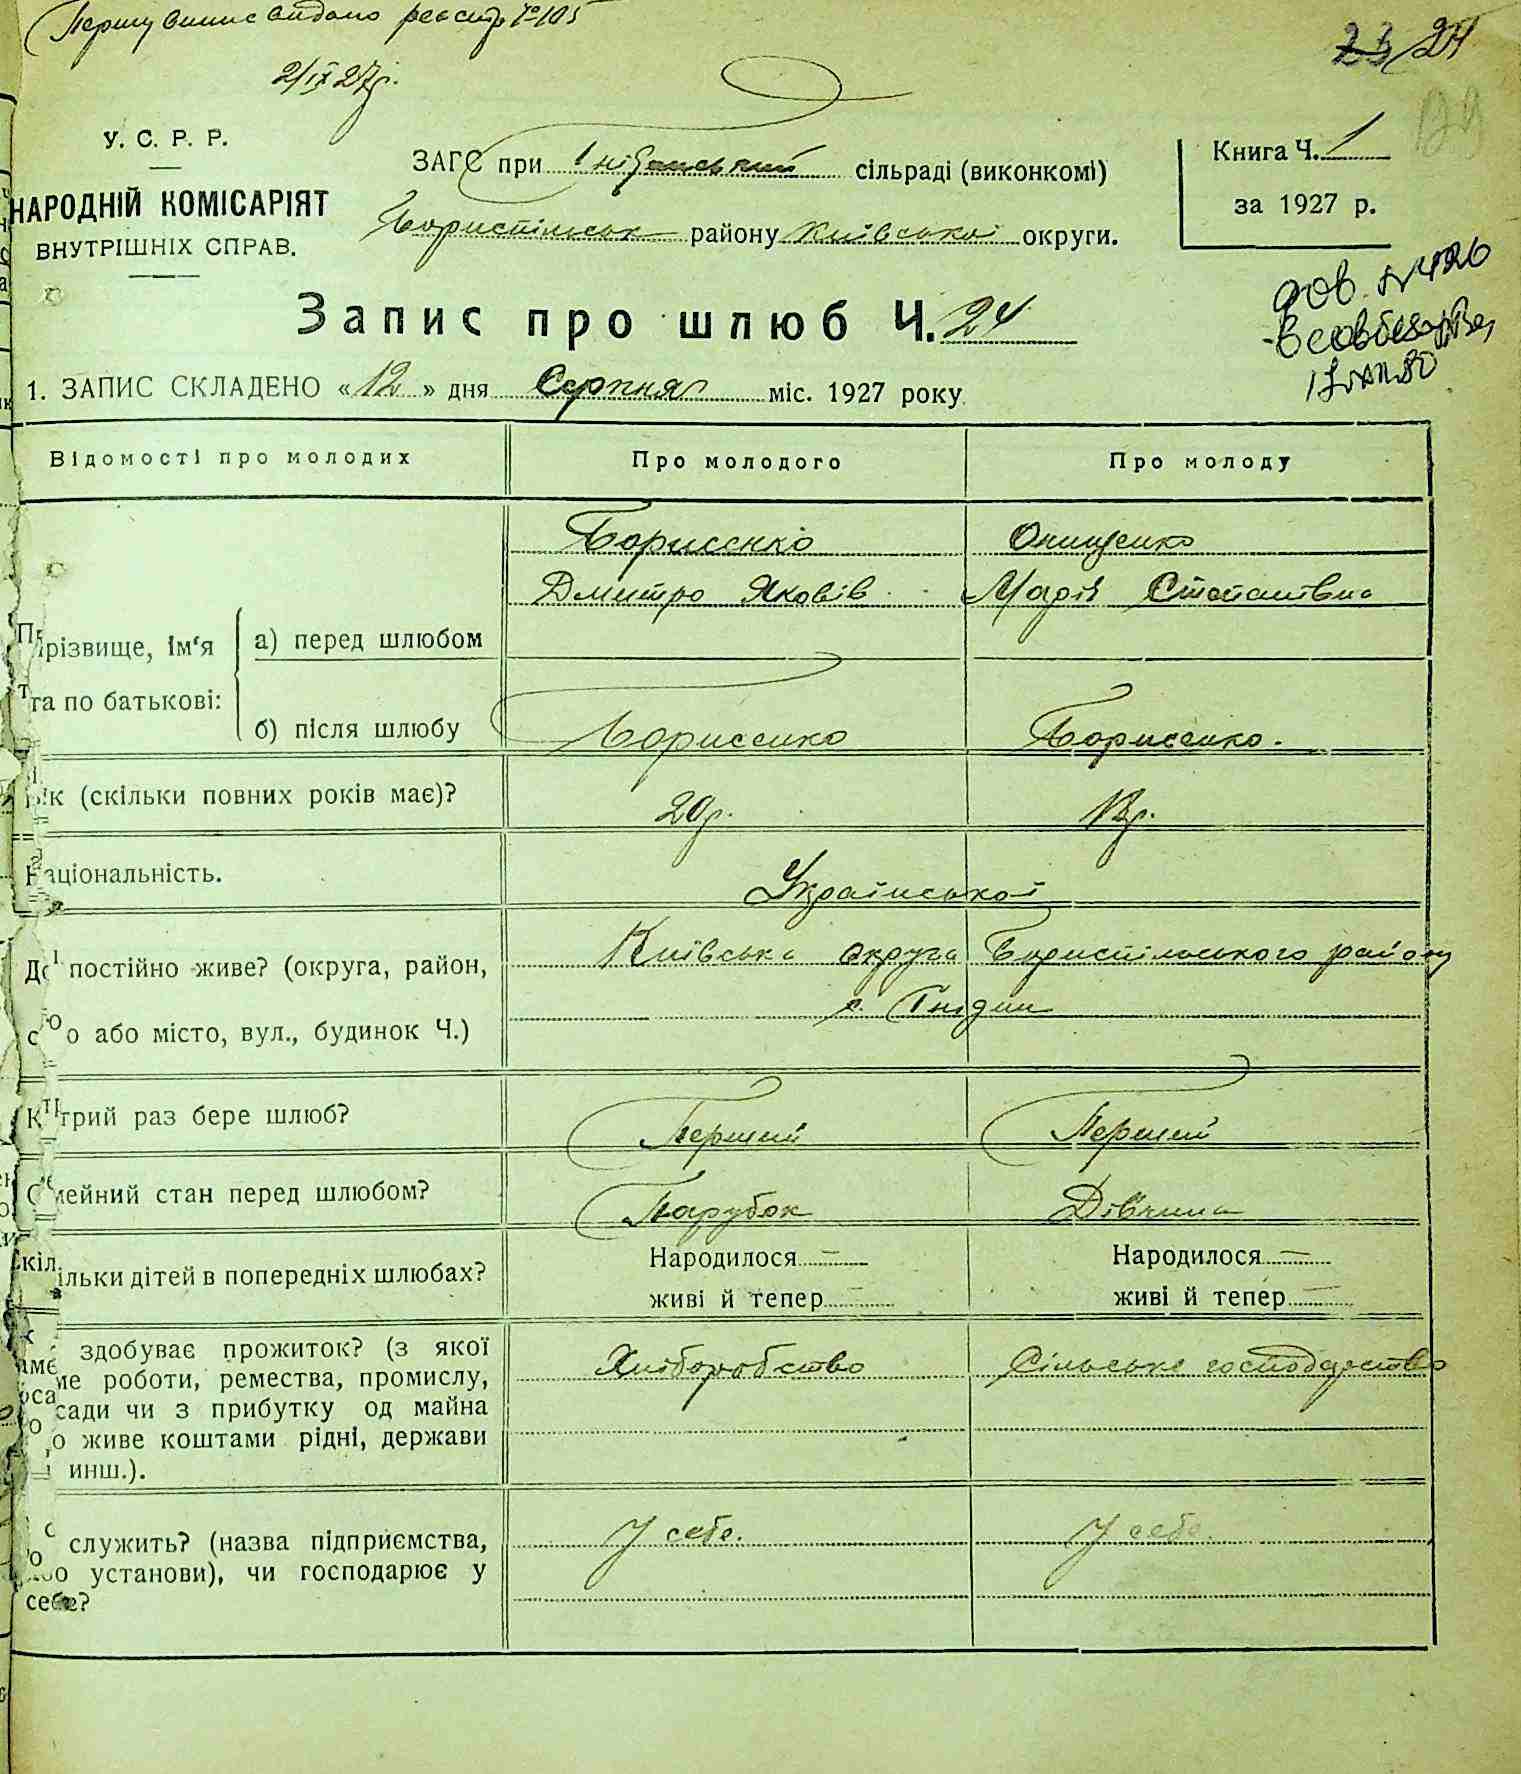 Першу випис видано реєстр № 105
2/ІХ 27р.
23/24
У. С. Р. Р.
НАРОДНІЙ КОМІСАРІЯТ
ВНУТРІШНІХ СПРАВ.
ЗАГС при Гнідинській сільраді (виконкомі)
Бориспільськ району Київської округи.
Книга Ч. 1
за 1927 р.
Запис про шлюб Ч. 24
1. ЗАПИС СКЛАДЕНО «12» дня Серпня міс. 1927 року
Відомості про молодих Про молодого Про молоду
Борисенко Онищенко
Дмитро Яковів Марія Степанівна
Прізвище, ім'я та по батькові: а) перед шлюбом
б) після шлюбу Борисенко Борисенко.
Вік (скільки повних років має)? 20р. 18р.
Національність. Української
Де постійно живе? (округа, район, Київська округа Бориспільського району
село або місто, вул., будинок Ч.) с. Гнідин
Котрий раз бере шлюб? Перший Перший
Сімейний стан перед шлюбом? Парубок Дівчина
Скільки дітей в попередніх шлюбах? Народилося — Народилося —
живі й тепер — живі й тепер —
здобуває прожиток? (з якої Хліборобство Сільське господарство
роботи, ремества, промислу,
посади чи з прибутку од майна
живе коштами рідні, держави
инш.).
служить? (назва підприємства, У себе. У себе.
або установи), чи господарює у
себе?